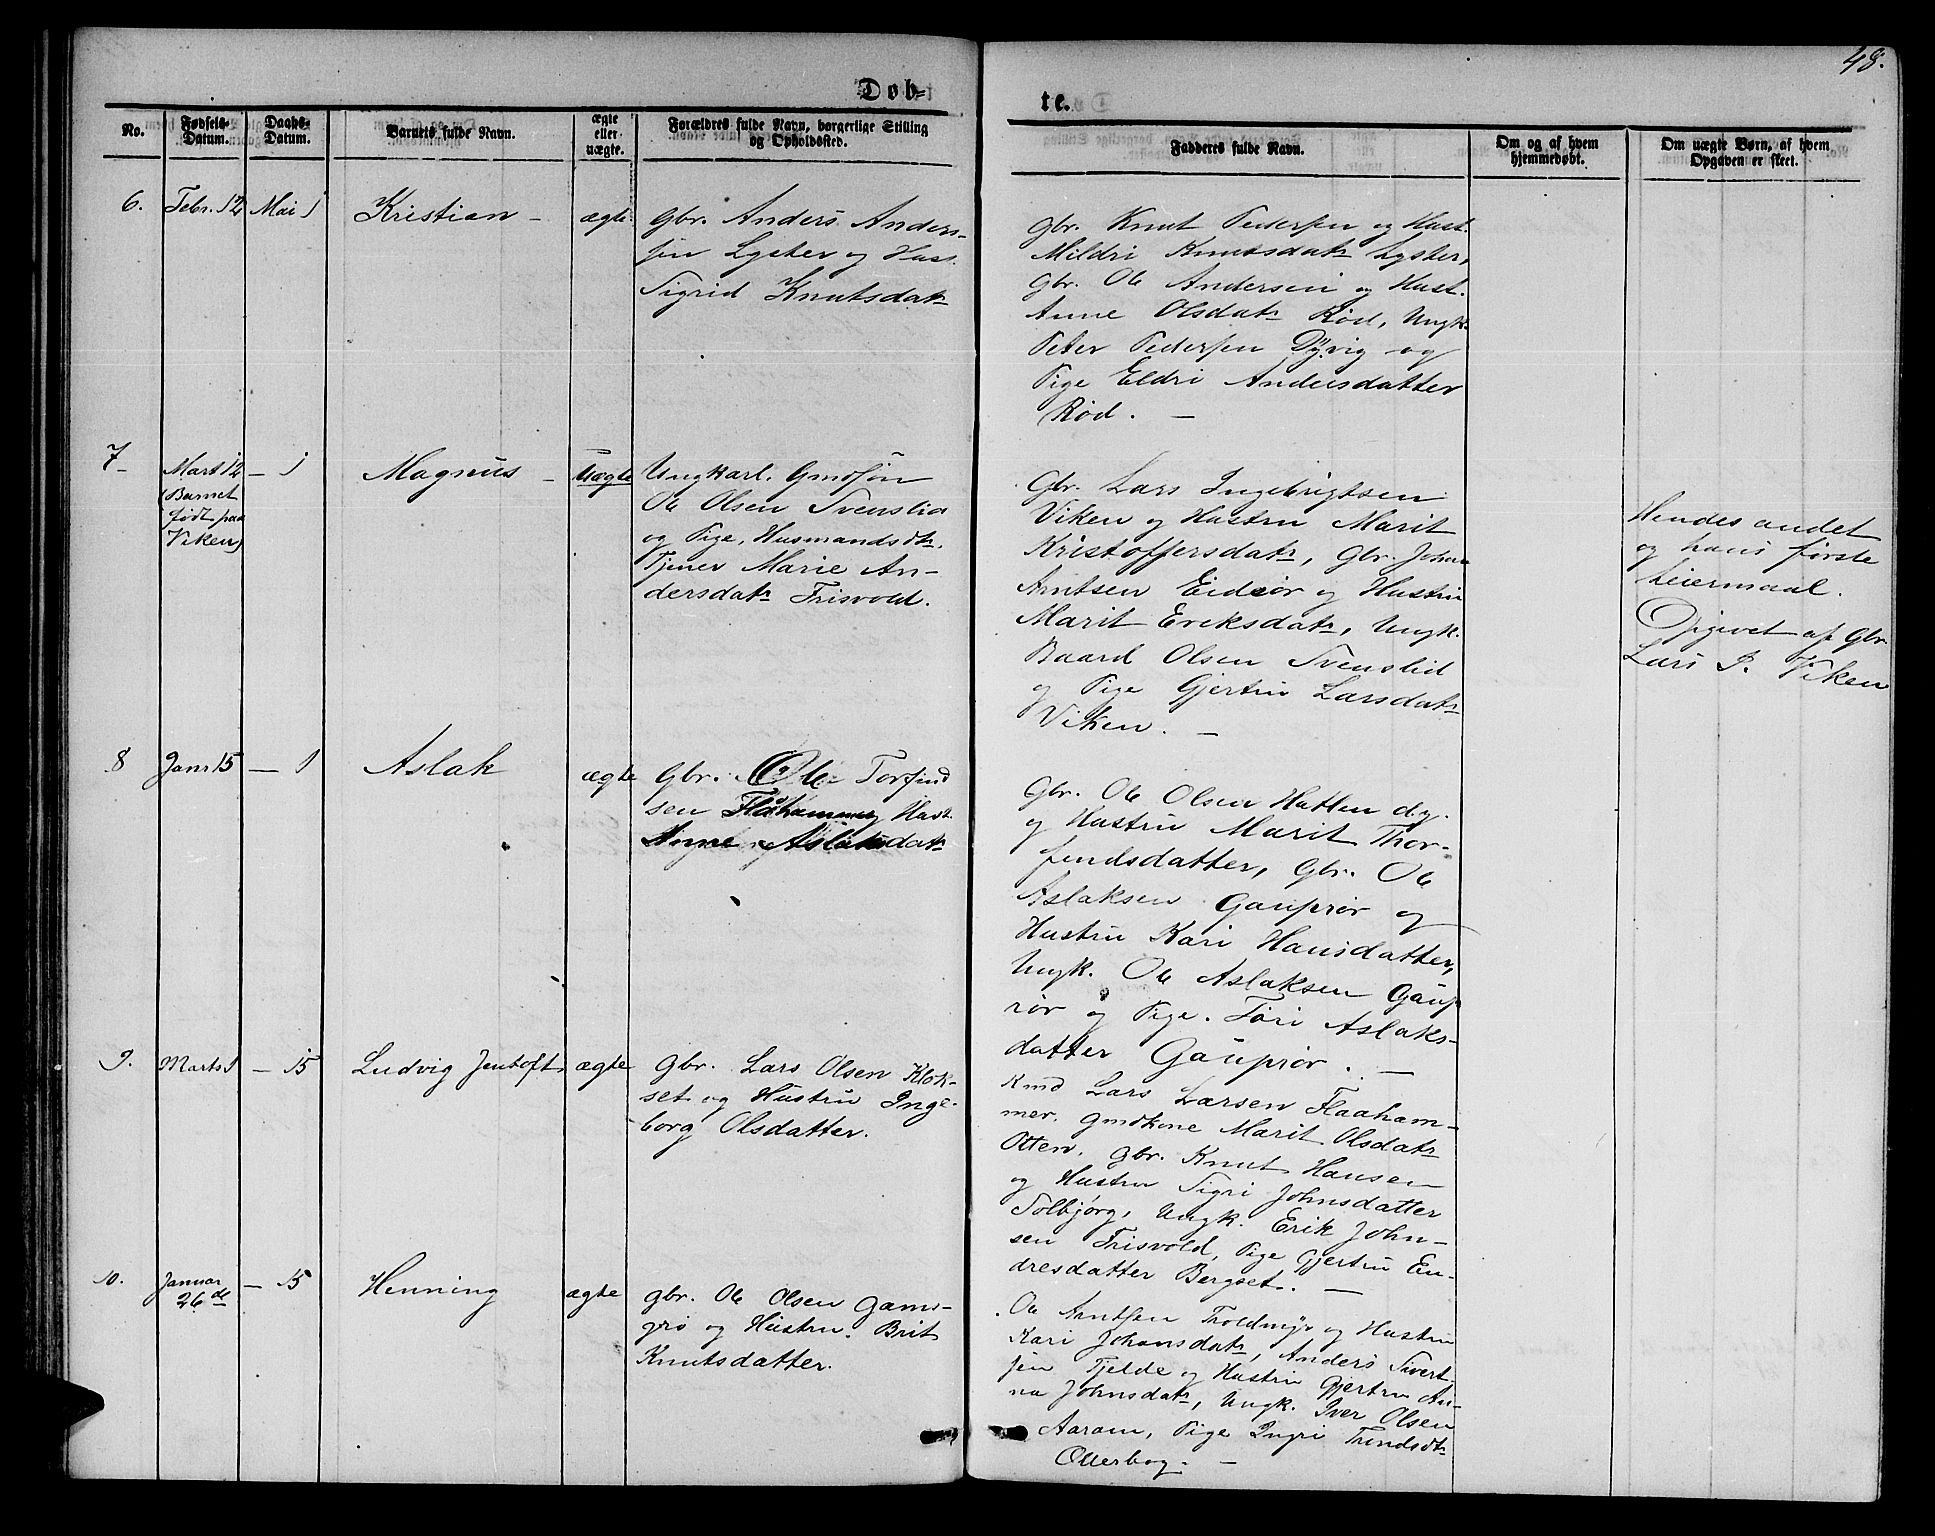 48.
Døb-
te.
No.
Fødsels-
Datum.
Daabs-
Datum.
Barnets fulde Navn.
ægte
eller
uægte.
Forældres fulde Navn, borgerlige Stilling
og Opholdssted.
Fadderes fulde Navn.
Om og af hvem
hjemmedøbt.
Om uægte Børn, af hvem
Opgaven er skeet.
6.
Febr. 12
Mai 1
Kristian -
ægte
Gbr. Anders Anders-
sen Lyster og Hust.
Sigrid Knutsdatr
Gbr. Knut Pedersen og Hust.
Mildri Knutsdatr Lyster,
Gbr. Ole Andersen og Hust.
Anne Olsdatr Rød, Ungk.
Peter Pedersen Dyvig og
Pige Eldri Andersdatter
Rød. -
7-
Marts 12
(Barnet
født paa
Viken)
- 1
Magnus -
Uægte
Ungkarl. Gmdsøn
Ole Olsen Svenslid
og Pige, Husmandsdtr.
Tjener Marie An-
dersdatr Frisvold.
Gbr. Lars Ingebrigtsen
Viken og Hustru Marit
Kristoffersdatr, Gbr. John
Arntsen Eidsør og Hustru
Marit Eriksdatr, Ungk.
Baard Olsen Svenslid
og Pige Gjertru Larsdatr
Viken. -
Hendes andet
og hans første
Leiermaal.
Opgivet af Gbr.
Lars I. Viken
8
Janr 15
- 1
Aslak
ægte
Gbr. Ole Torfind
sen Flåhammer Hust.
Anne Aslaksdatr
Gbr. Ole Olsen Hatlen d.y.
og Hustru Marit Thor-
findsdatter, Gbr. Ole
Aslaksen Gauprør og
Hustru Kari Hansdatter,
Ungk. Ole Aslaksen Gaup
rør og Pige. Turi Aslaks-
datter Gauprør. -
9.
Marts 1
- 15
Ludvig Jentoft
ægte
Gbr. Lars Olsen Klok-
set og Hustru Inge-
borg Olsdatter.
Kmd Lars Larsen Flaaham-
mer, Gmdkone Marit Olsdatr
Otten, Gbr. Knut Hansen
og Hustru Sigri Johnsdatter
Solbjørg, Ungk. Erik John-
sen Frisvold, Pige Gjertru En-
dresdatter Bergset. -
10.
Januar
26de
- 15
Henning
ægte
Gbr. Ole Olsen Gams-
grø og Hustru. Brit
Knutsdatter.
Ole Arntsen Tholdmyr og Hustru
Kari Johansdatr, Anders Sivert
sen Tjelde og Hustru Gjertru An-
na Johnsdatr, Ungk. Iver Olsen
Aaram, Pige Ingri Trondsdtr
Ollerhog. -